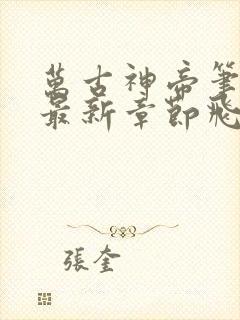 萬古神帝筆
最新章節飛
張奎